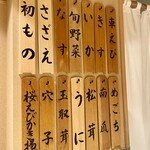 車えび
きす
いか
旬野菜
なす
さざえ
初もの
めごち
南瓜
松茸
うに
玉取茸
穴子
桜えびかき揚